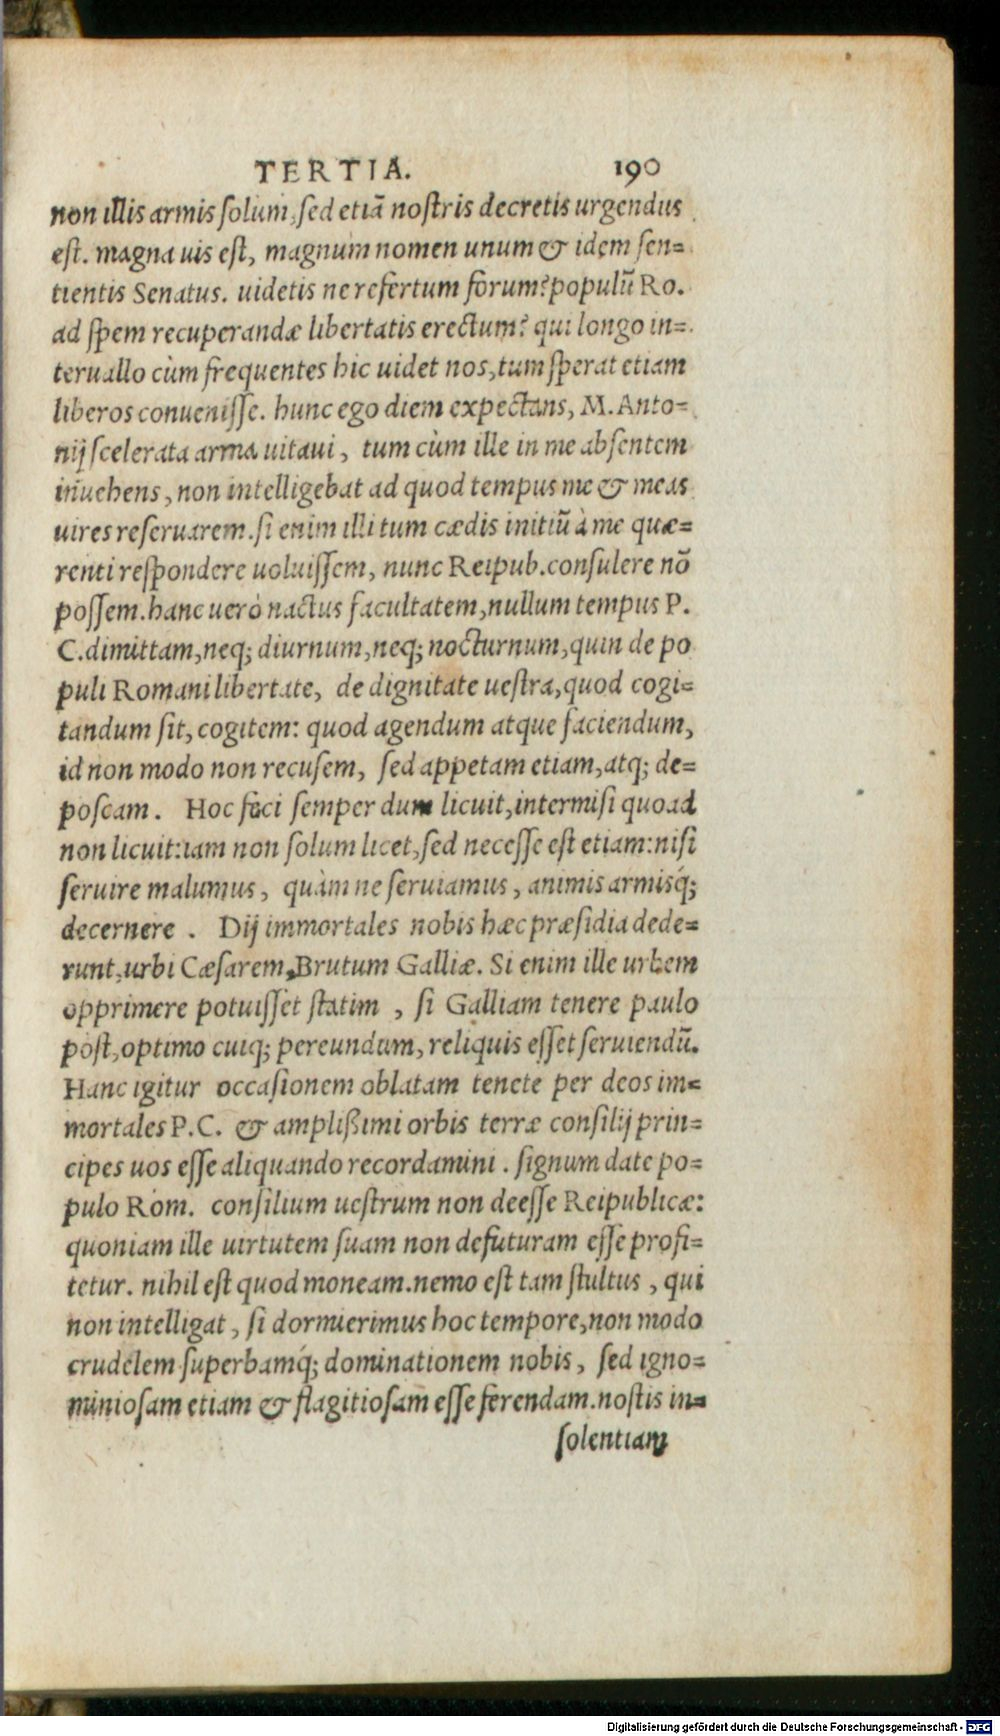 TERTIA. 190
non illis armis solum, sed etiã nostris decretis urgendus
est. magna uis est, magnum nomen unum & idem sen-
tientis Senatus. uidetis ne refertum forum? populũ Ro.
ad spem recuperandæ libertatis erectum? qui longo in-
teruallo cùm frequentes hic uidet nos, tum sperat etiam
liberos conuenisse. hunc ego diem expectans, M. Anto-
nij scelerata arma uitaui, tum cùm ille in me absentem
inuehens, non intelligebat ad quod tempus me & meas
uires reseruarem. si enim illi tum cædis initiũ à me quæ-
renti respondere uoluissem, nunc Reipub. consulere nõ
possem. hanc uerò nactus facultatem, nullum tempus P.
C. dimittam, neq; diurnum, neq; nocturnum, quin de po
puli Romani libertate, de dignitate uestra, quod cogi-
tandum sit, cogitem: quod agendum atque faciendum,
id non modo non recusem, sed appetam etiam, atq; de-
poscam. Hoc feci semper dum licuit, intermisi quoad
non licuit: iam non solum licet, sed necesse est etiam: nisi
seruire malumus, quàm ne seruiamus, animis armisq́;
decernere. Dij immortales nobis hæc præsidia dede-
runt, urbi Cæsarem, Brutum Galliæ. Si enim ille urbem
opprimere potuisset statim, si Galliam tenere paulo
post, optimo cuiq; pereundum, reliquis esset seruiendũ.
Hanc igitur occasionem oblatam tenete per deos im-
mortales P.C. & amplißimi orbis terræ consilij prin-
cipes uos esse aliquando recordamini. signum date po-
pulo Rom. consilium uestrum non deesse Reipublicæ:
quoniam ille uirtutem suam non defuturam esse profi-
tetur. nihil est quod moneam. nemo est tam stultus, qui
non intelligat, si dormierimus hoc tempore, non modo
crudelem superbamq́; dominationem nobis, sed igno-
miniosam etiam & flagitiosam esse ferendam. nostis in-
solentiam
Digitalisierung gefördert durch die Deutsche Forschungsgemeinschaft - DFG